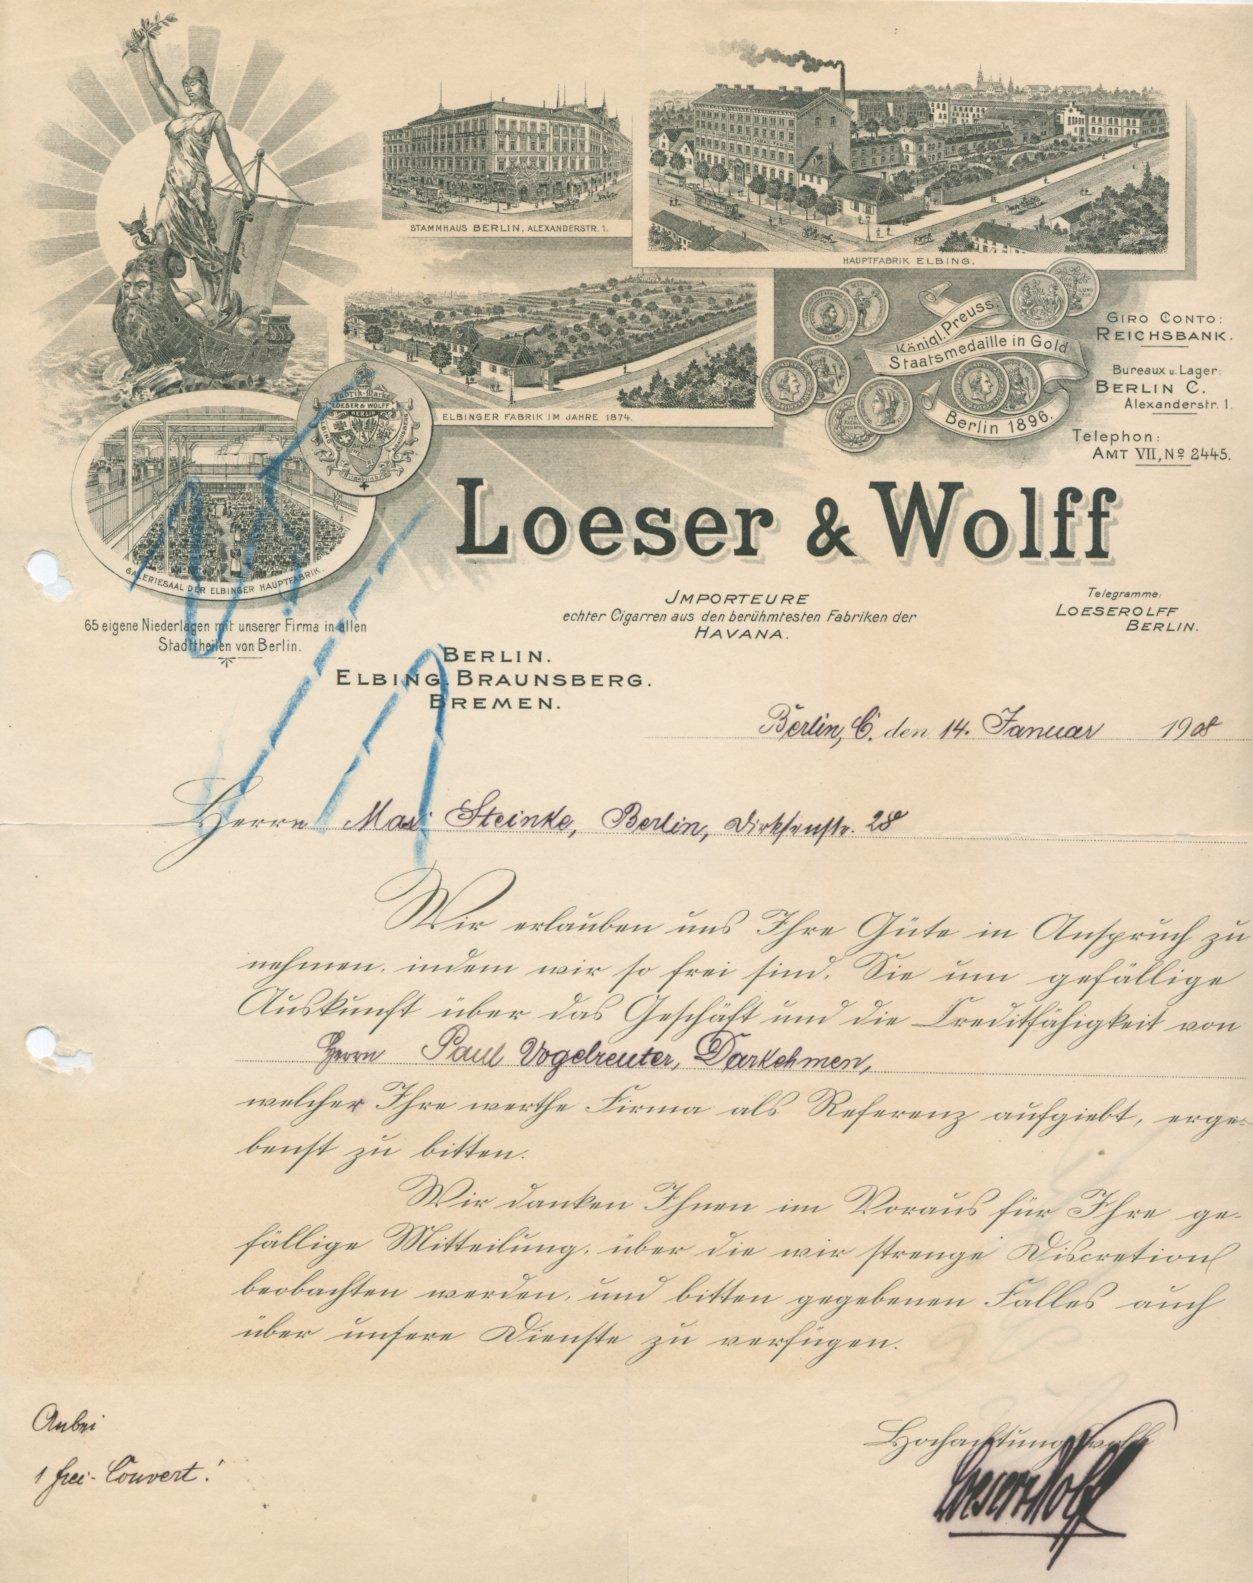 STAMMHAUS BERLIN, ALEXANDERSTR. 1.
HAUPTFABRIK ELBING.
ELBINGER FABRIK IM JAHRE 1874.
Königl. Preuss.
Staatsmedaille in Gold
Berlin 1896.
GIRO CONTO:
REICHSBANK.
Bureaux u. Lager:
BERLIN C.
Alexanderstr. 1.
Telephon:
AMT VII, No 2445.
Fabrik-Marke
LOESER & WOLFF
BERLIN
GALERIESAAL DER ELBINGER HAUPTFABRIK.
Loeser & Wolff
65 eigene Niederlagen mit unserer Firma in allen
Stadttheilen von Berlin.
JMPORTEURE
echter Cigarren aus den berühmtesten Fabriken der
HAVANA.
Telegramme:
LOESEROLFF
BERLIN.
BERLIN.
ELBING, BRAUNSBERG.
BREMEN.
Berlin, C. den 14. Januar 1908
Herrn Max Steinke, Berlin, Dirksenstr. 28
Wir erlauben uns Ihre Güte in Anspruch zu
nehmen, indem wir so frei sind, Sie um gefällige
Auskunft über das Geschäft und die Creditfähigkeit von
Herrn Paul Vogelreuter, Darkehmen,
welcher Ihre werthe Firma als Referenz aufgiebt, erge-
benst zu bitten.
Wir danken Ihnen im Voraus für Ihre ge-
fällige Mitteilung, über die wir strenge Discretion
beobachten werden, und bitten gegebenen Falles auch
über unsere Dienste zu verfügen.
Anbei
1 frei-Couvert!
Hochachtungsvoll
Loeser & Wolff